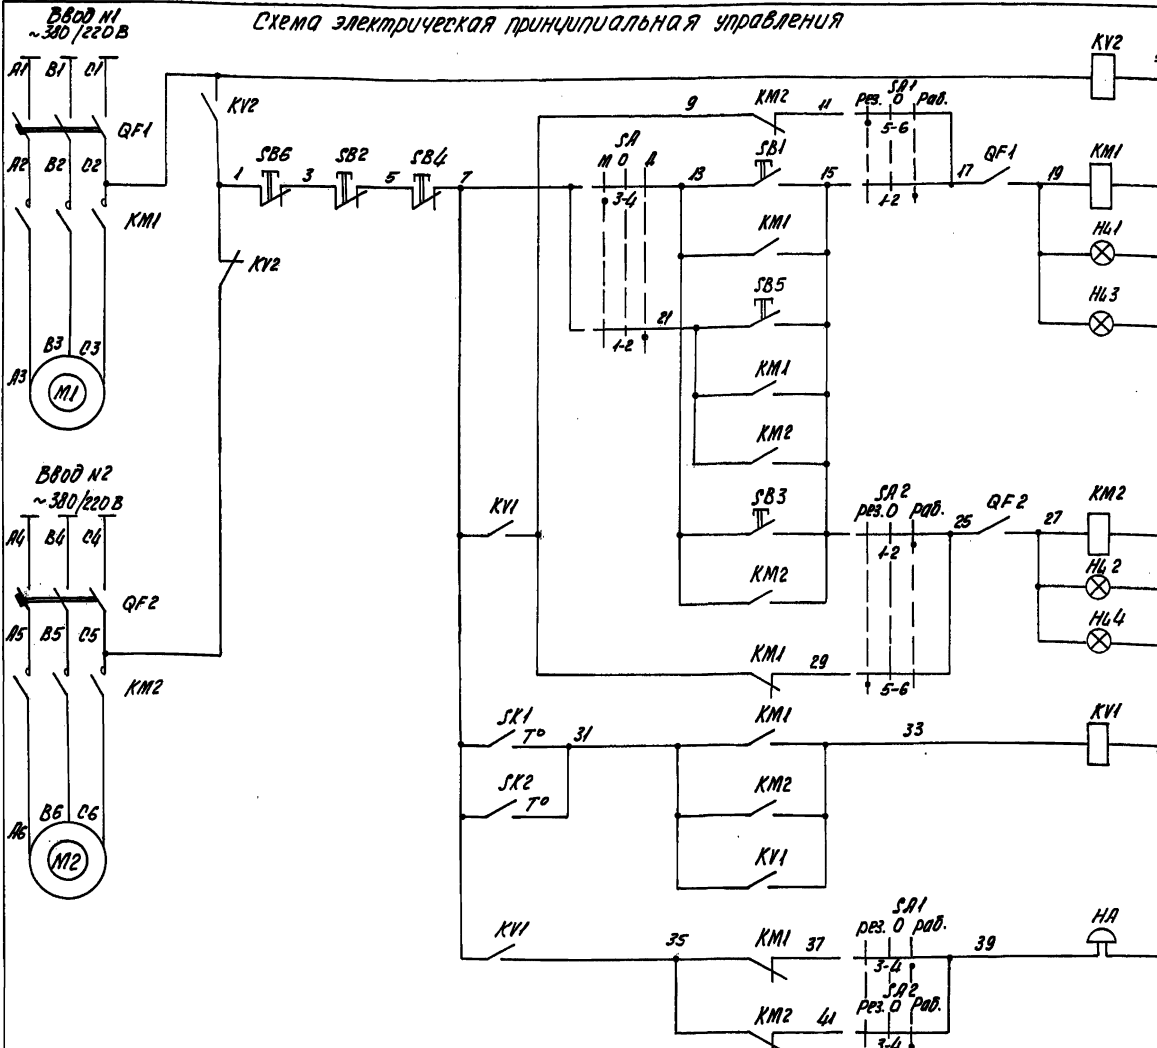 Схема электрическая принципиальная управления
Ввод N1
~380/220В
A1 B1 C1
QF1
A2 B2 C2
KM1
A3 B3 C3
M1
Ввод N2
~380/220В
A4 B4 C4
QF2
A5 B5 C5
KM2
A6 B6 C6
M2
KV2
KV2
KV2
1 SB6 3 SB2 5 SB4 7
9 KM2 11
SA1
Рез. О Раб.
5-6
SA
М О Д
3-4
13 SB1 15
1-2
17 QF1 19 KM1
KM1
HL1
SB5
HL3
21
1-2
KM1
KM2
KV1
SB3
SA2
рез. О раб.
1-2
25 QF2 27 KM2
KM2
HL2
HL4
KM1 29
5-6
SK1 T° 31
KM1 33 KV1
SK2 T°
KM2
KV1
KV1 35
KM1 37
SA1
рез. О раб.
3-4
39 HA
KM2 41
SA2
Рез. О Раб.
3-4